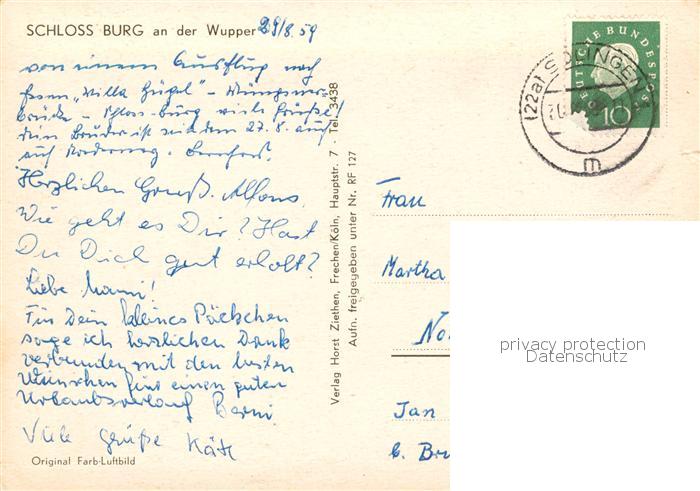 SCHLOSS BURG an der Wupper 29/8.59
von einem Ausflug nach
Essen "Villa Hügel" - Müngstner-
brücke - Schloss-Burg viele Grüße!
Dein Bruder ist seit dem 27.8. auf
auf Norderney. Bernhard.
Herzlichen Gruß. Alfons.
Wie geht es Dir? Hast
Du Dich gut erholt?
Liebe Mami!
Für Dein kleines Päckchen
sage ich herzlichen Dank
verbunden mit den besten
Wünschen für einen guten
Urlaubsverlauf Berni
Viele Grüße Käte
Original Farb-Luftbild
Verlag Horst Ziethen, Frechen/Köln, Hauptstr. 7 · Tel. 3438
Aufn. freigegeben unter Nr. RF 127
DEUTSCHE BUNDESPOST
10
(22a) SOLINGEN
m
Frau
Martha
Jan
privacy protection
Datenschutz